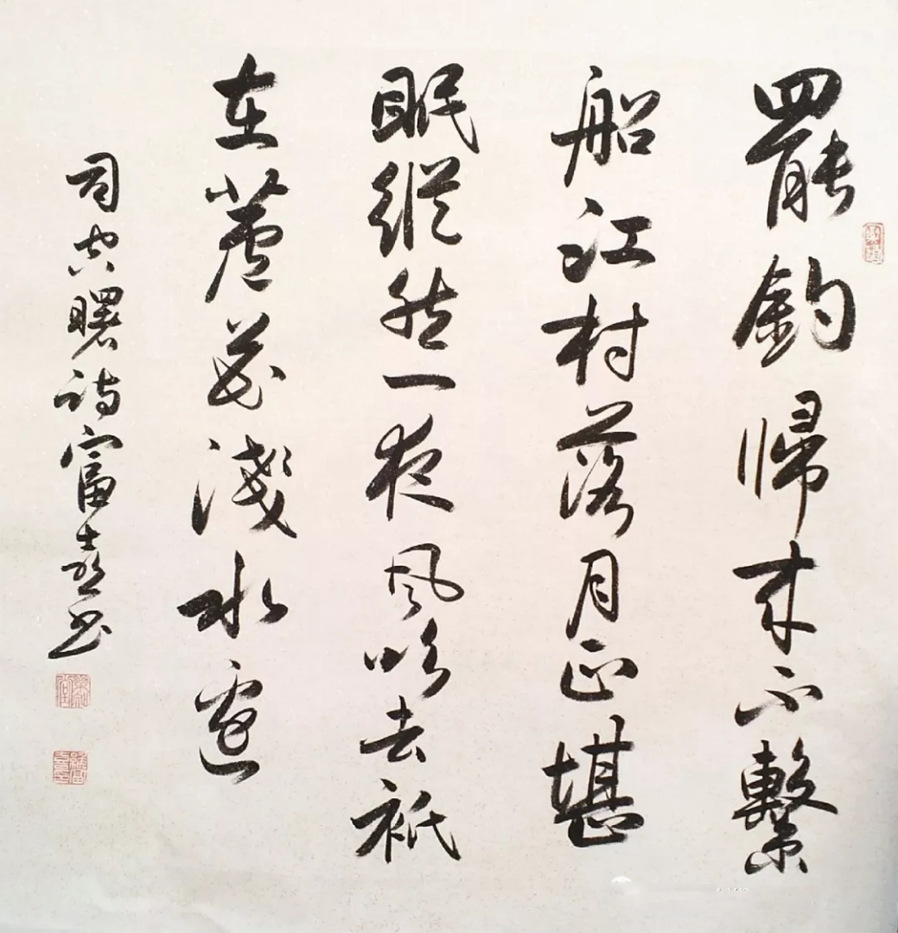 罷釣歸來不繫
船江村落月正堪
眠縱然一夜風吹去衹
在蘆花淺水邊
司空曙詩富喜書